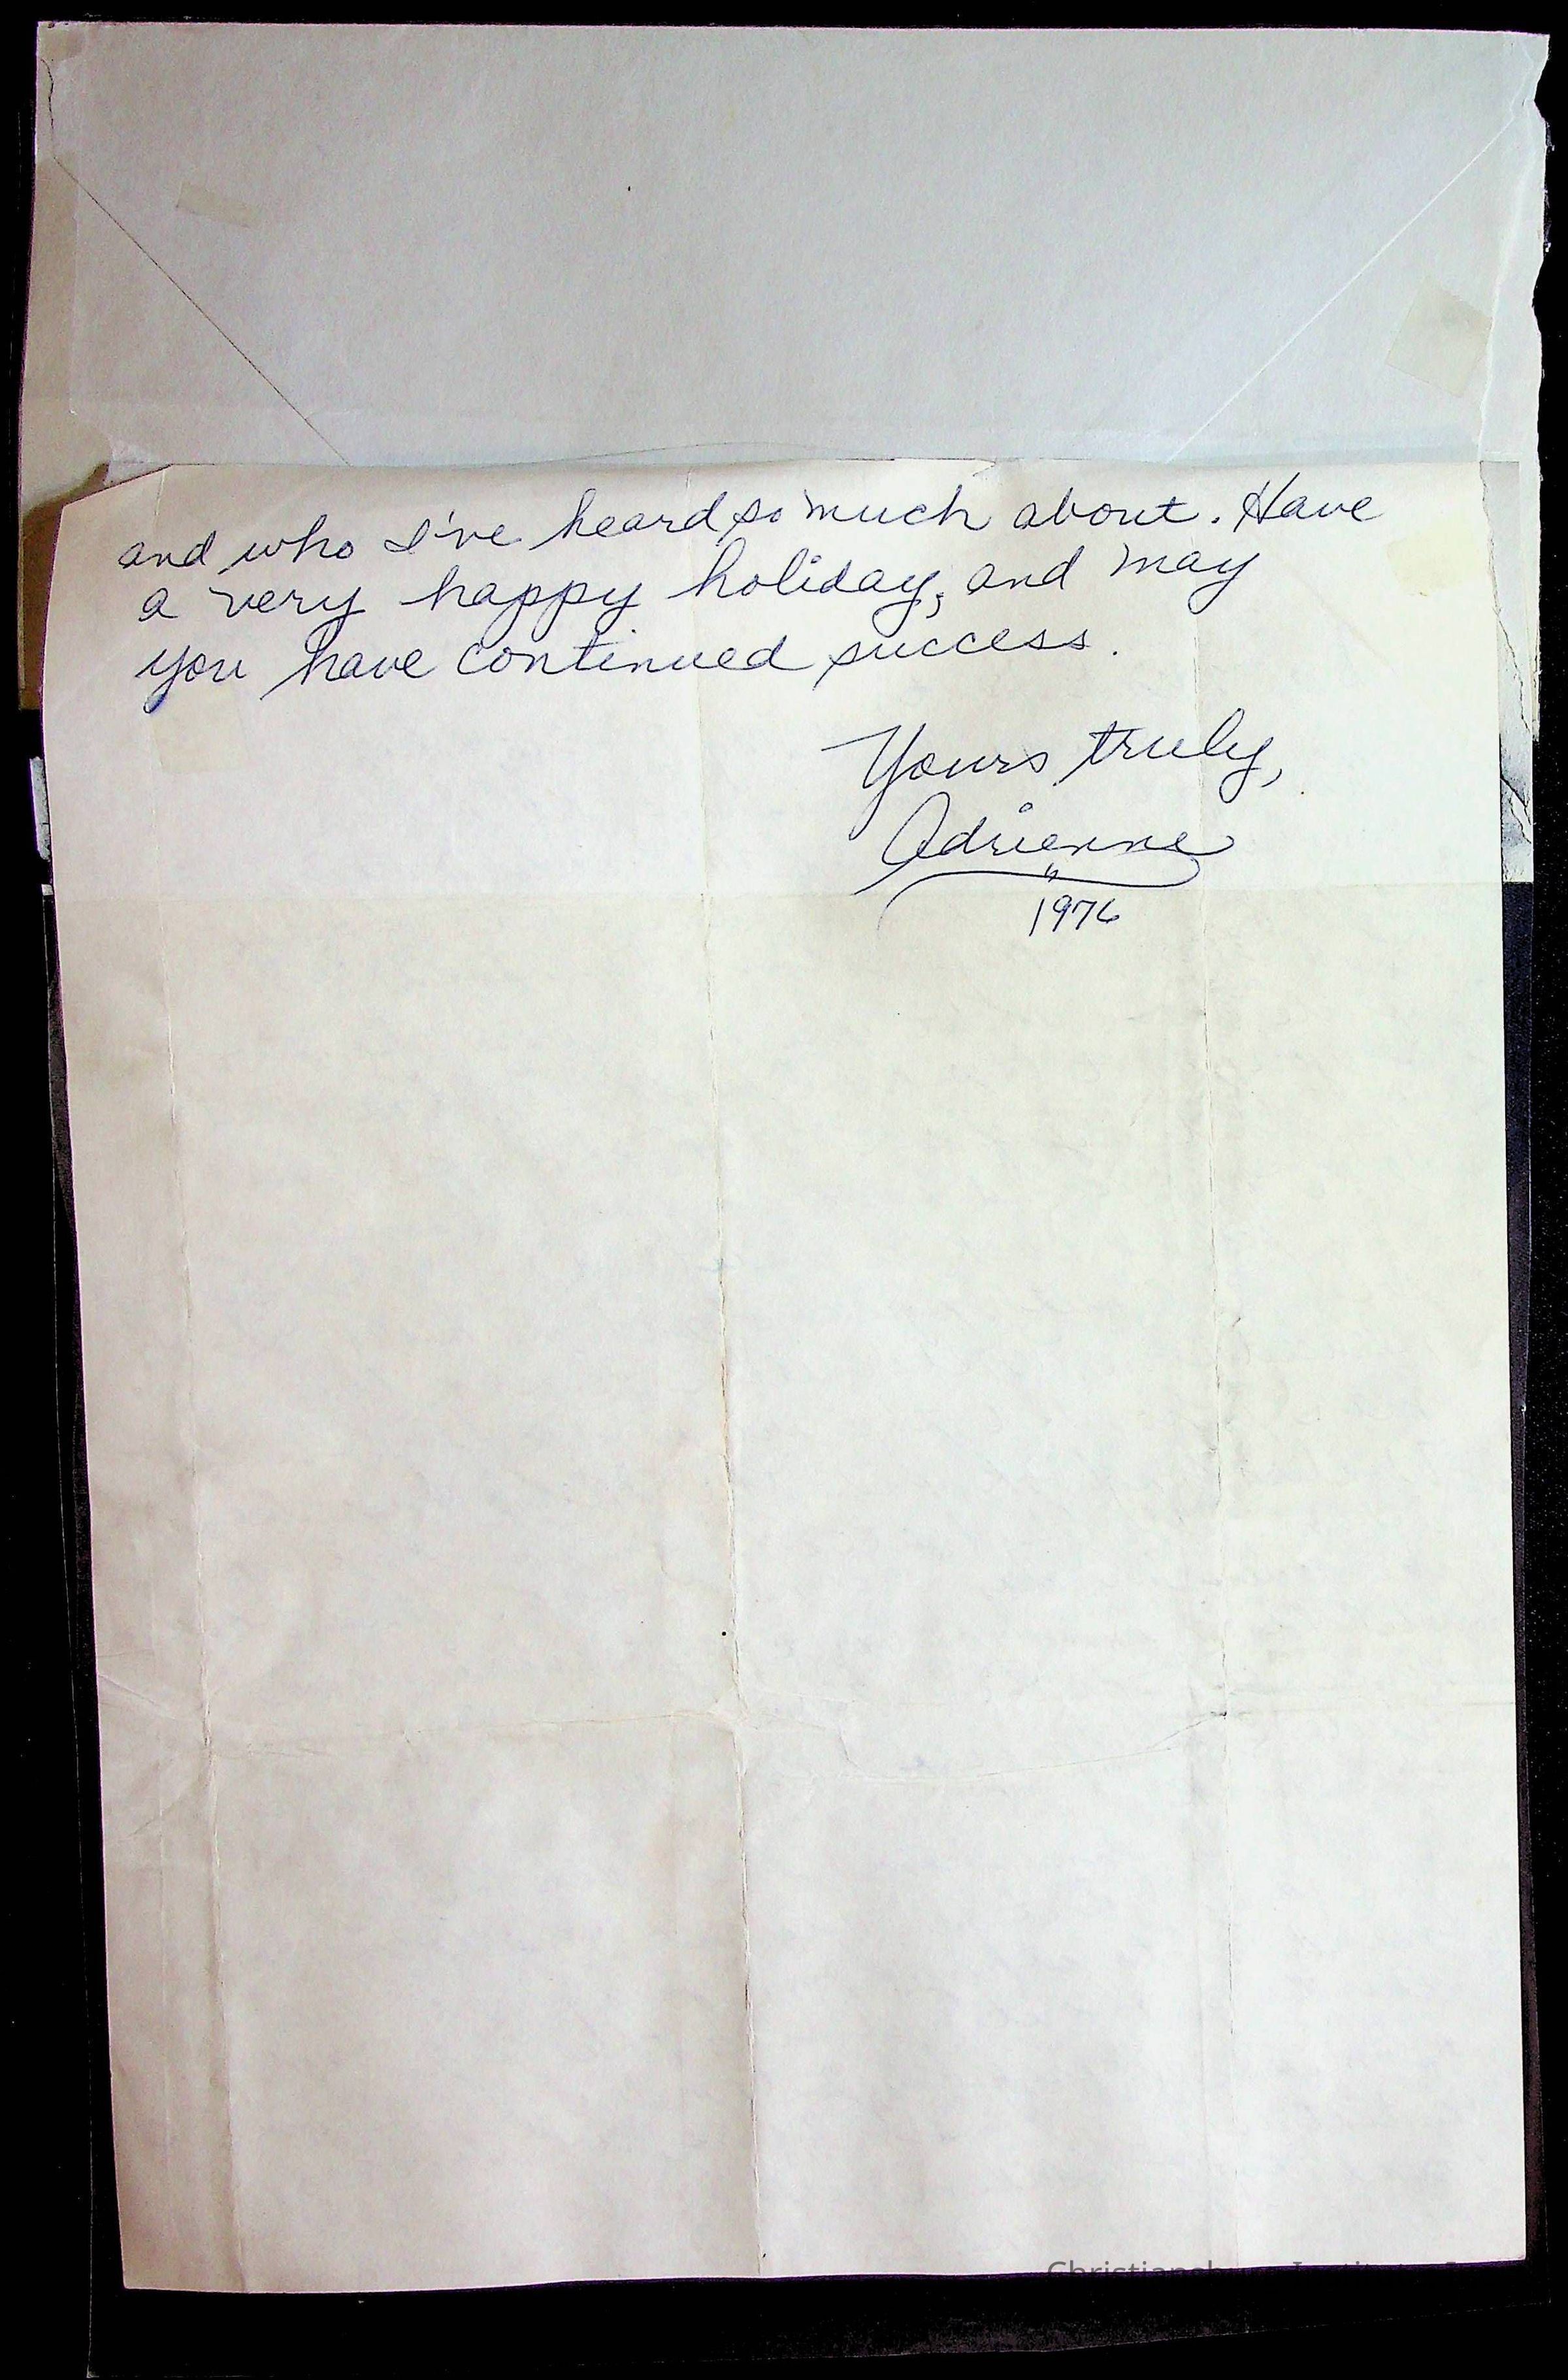 and who I've heard so much about. Have
a very happy holiday, and may
you have continued success.
Yours truly,
Adrienne
1976